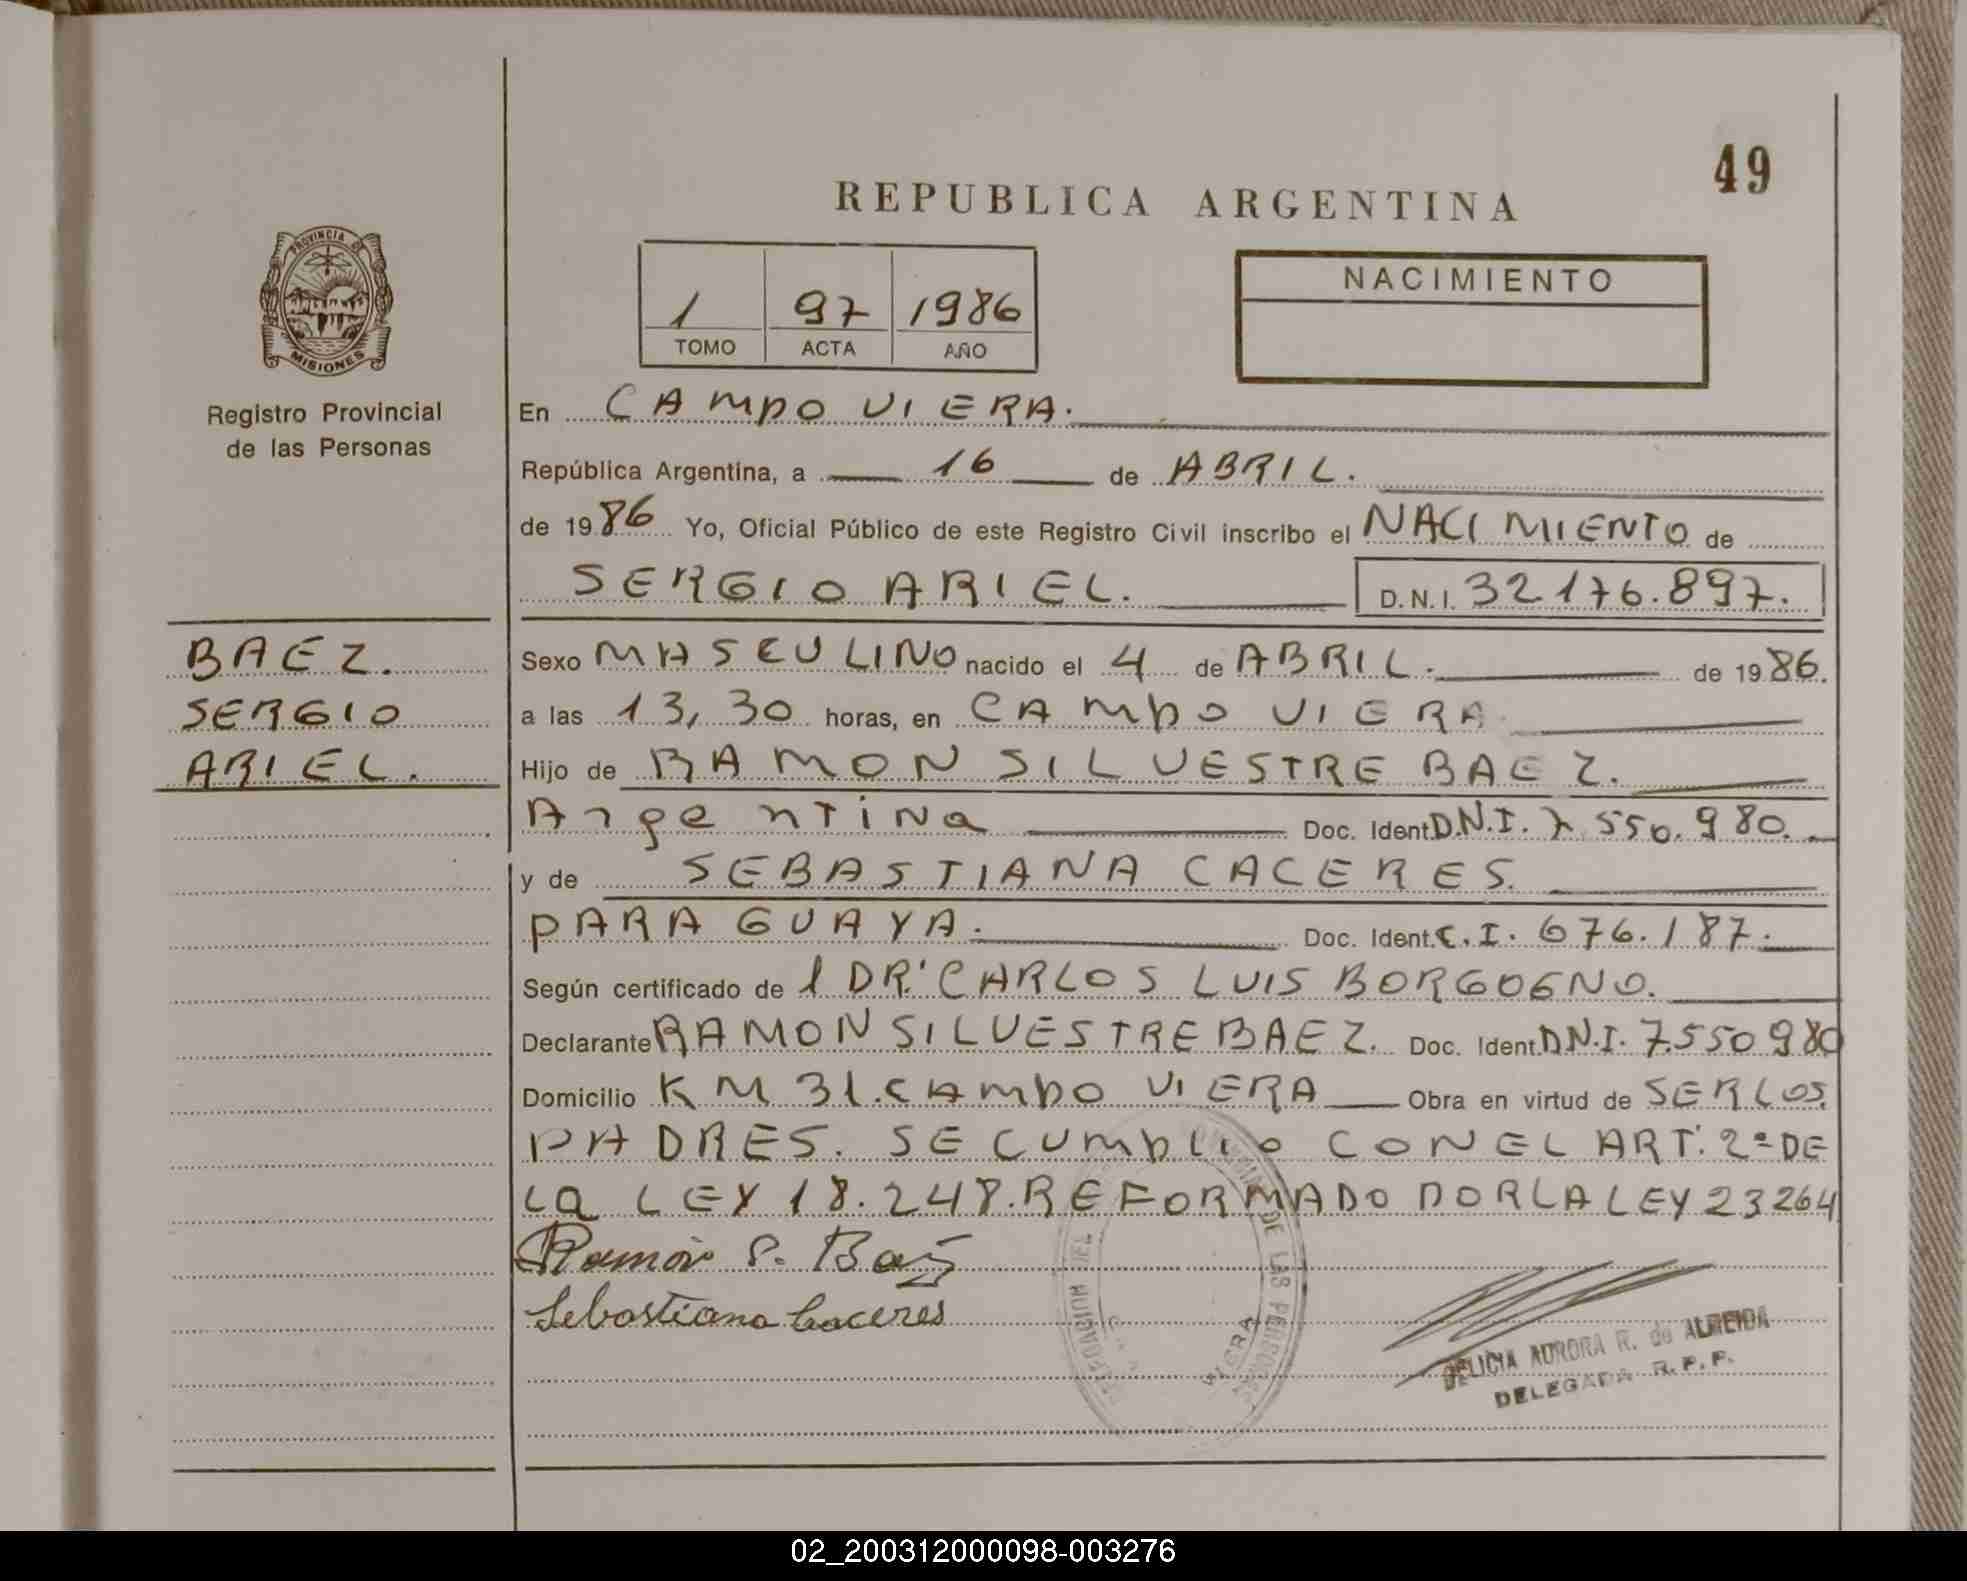 49
REPUBLICA ARGENTINA
PROVINCIA DE
MISIONES
Registro Provincial
de las Personas
1 97 1986
TOMO ACTA AÑO
NACIMIENTO
En CAMPO VIERA.
República Argentina, a 16 de ABRIL.
de 1986 Yo, Oficial Público de este Registro Civil inscribo el NACIMIENTO de
SERGIO ARIEL. D.N.I. 32.176.897.
BAEZ.
SERGIO
ARIEL.
Sexo MASCULINO nacido el 4 de ABRIL. de 1986.
a las 13,30 horas, en CAMPO VIERA.
Hijo de RAMON SILVESTRE BAEZ.
Argentina Doc. Ident. D.N.I. 7.550.980.
y de SEBASTIANA CACERES.
PARAGUAYA. Doc. Ident. C.I. 676.187.
Según certificado de 1 DR. CARLOS LUIS BORGOGNO.
Declarante RAMON SILVESTRE BAEZ. Doc. Ident. D.N.I. 7.550980
Domicilio KM 31. CAMPO VIERA Obra en virtud de SER LOS
PADRES. SE CUMPLIO CON EL ART. 2º DE
LA LEY 18.248. REFORMADO POR LA LEY 23264
Ramón S. Baez
Sebastiana Caceres
DE LAS PERSONAS
VIERA
DELICIA AURORA R. de ALMEIDA
DELEGADA R.P.P.
02_200312000098-003276